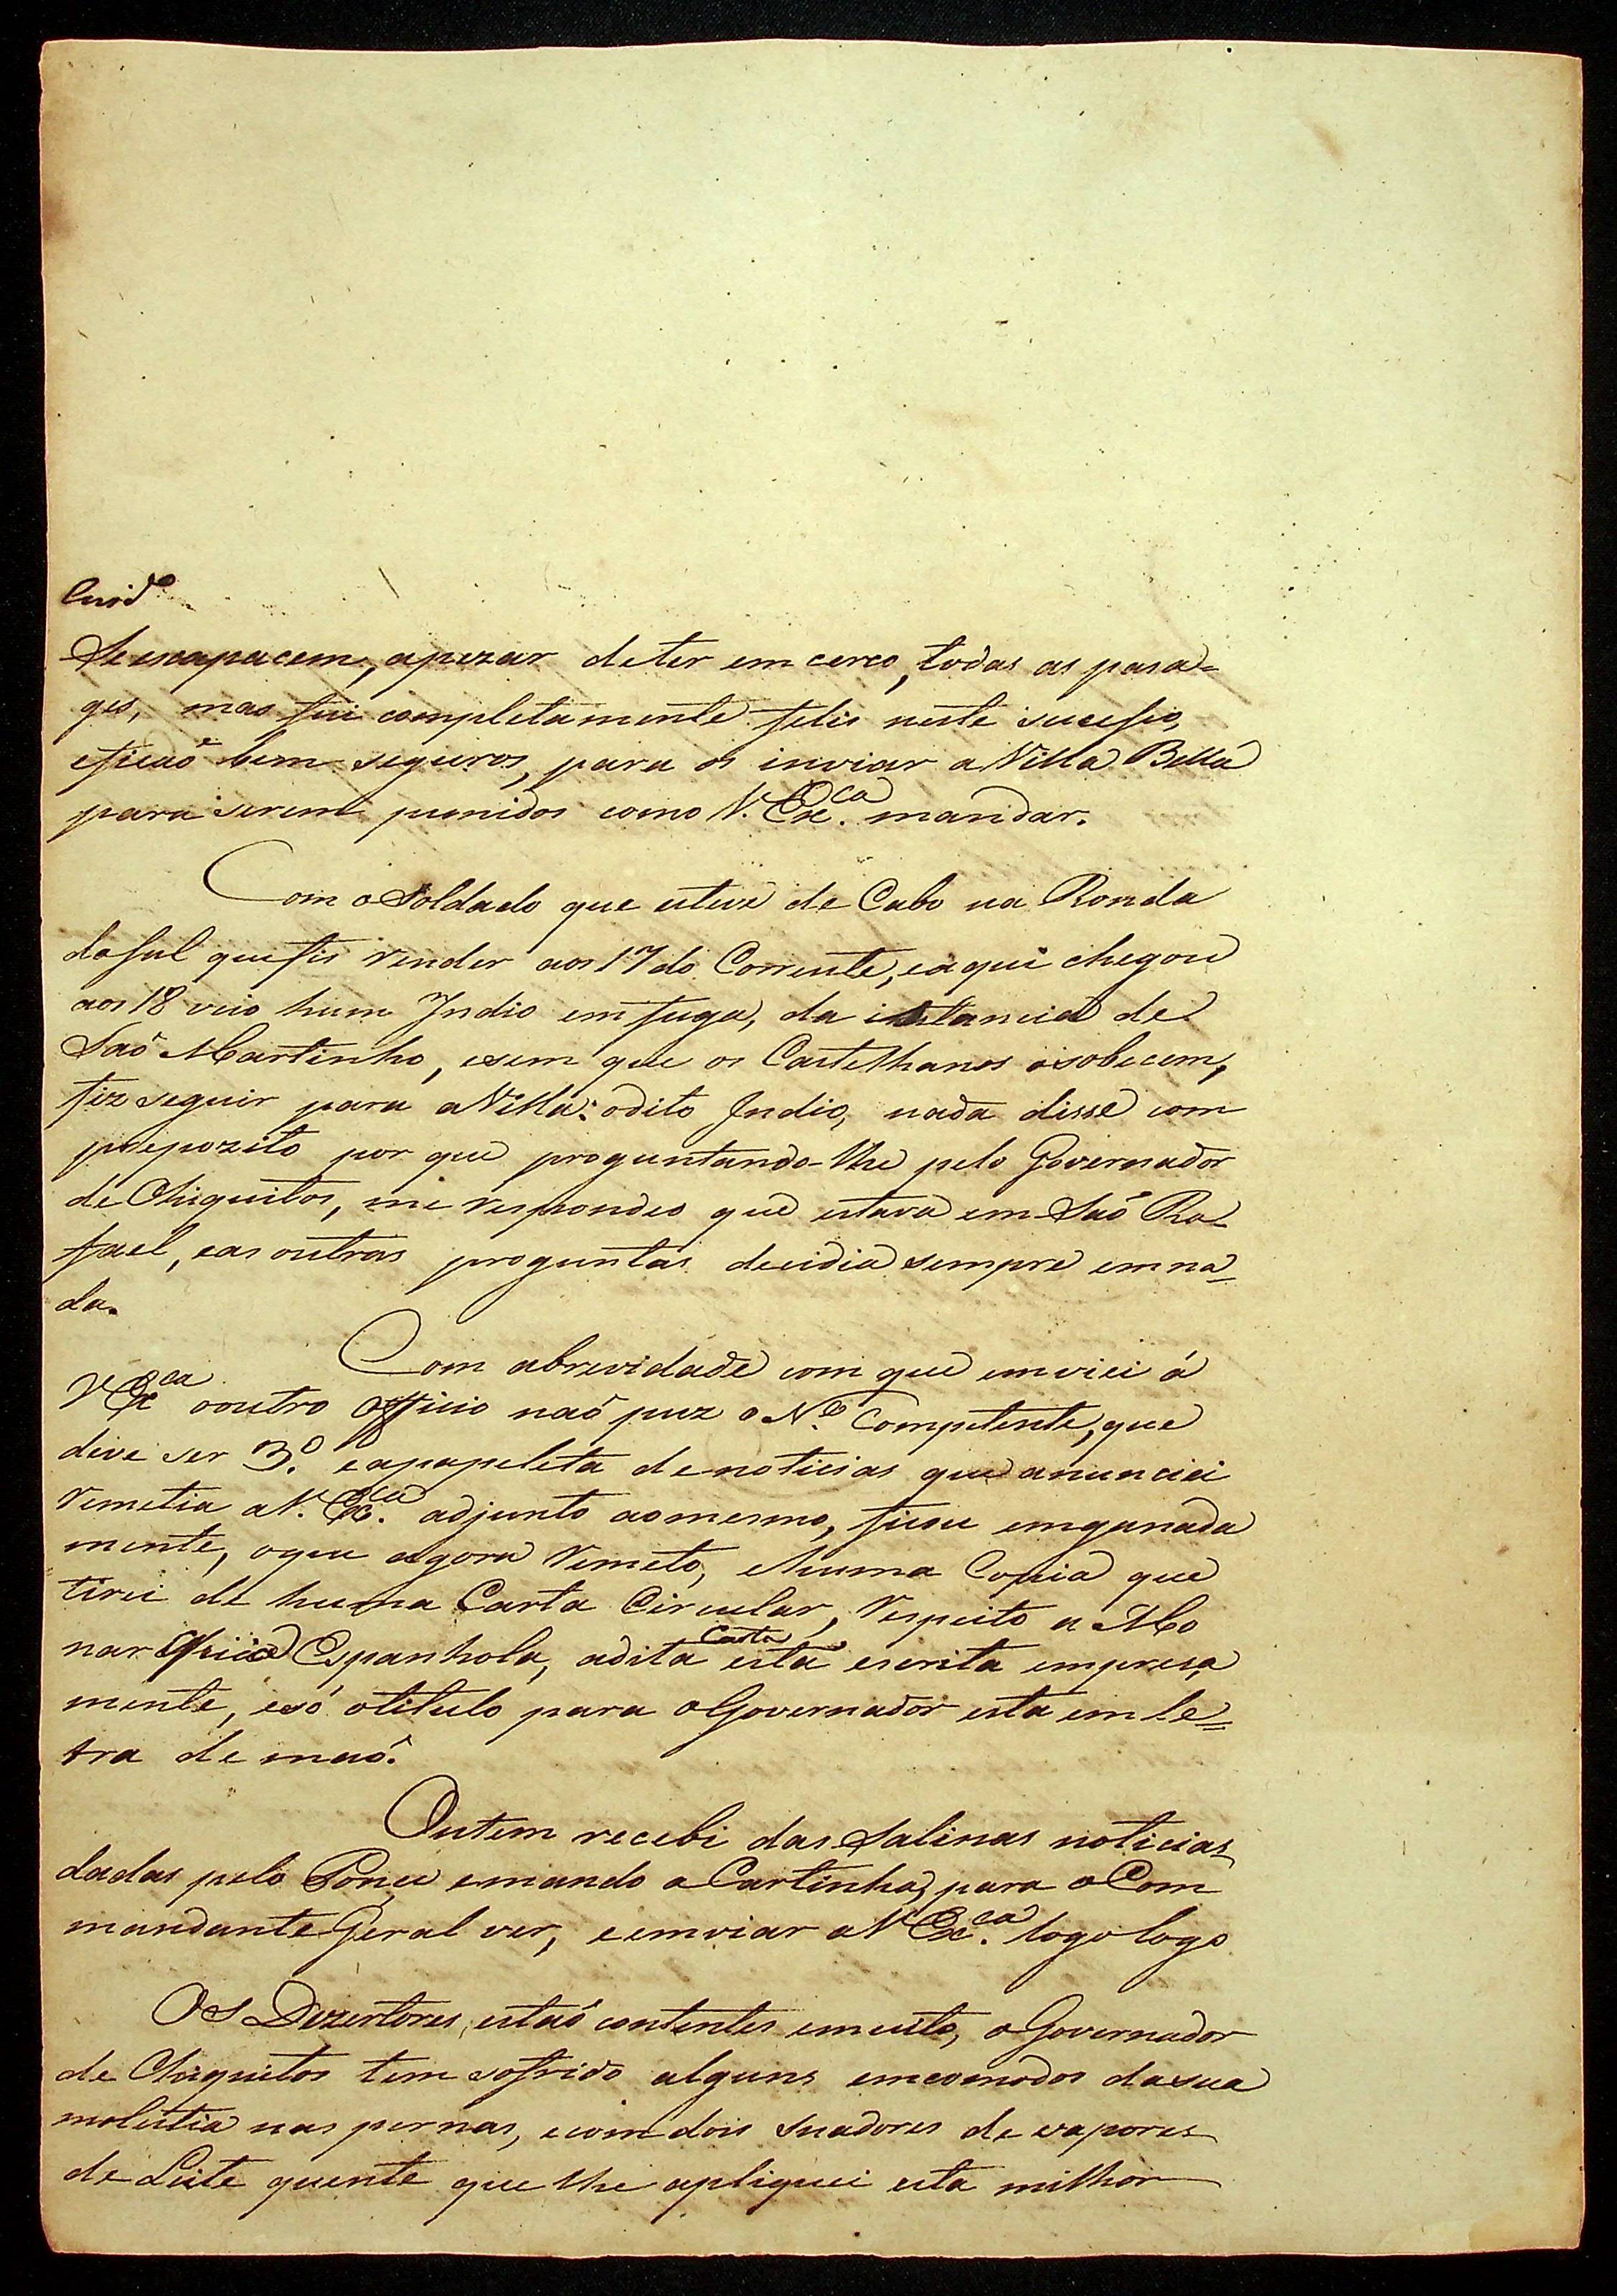 Cuid.º
Se escapacem, apezar deter em cerco, todas as pasa=
ges, mas fui completamente felis neste sucesso,
eficaõ bem seguros, para os inviar a Villa Bella
para serem punidos como V. Ex.ca mandar.
Com o Soldado que esteve de Cabo na Ronda
do Sul que fis render aos 17 do Corrente, eaqui chegou
aos 18 veio hum Indio emfuga, da instancia de
Saõ Martinho, esem que os Castelhanos osobecem,
fiz seguir para aVilla: odito Indio, nada disse com
prepozito por que proguntando-lhe pelo Governador
de Chiquitos, me respondeo que estava em Saõ Ra
fael, eas outras proguntas decidia sempre emna=
da.
Com abrevidade com que enviei á
V Ex.ca ooutro Officio naõ puz o N.º Competente, que
deve ser 3.º eapapeleta denoticias que anunciei
remetia aV. Ex.ca adjunto aomesmo, ficou emganada
mente, oque agora remeto, ehuma Copia que
tirei de huma Carta Circular, respeito a Mo
narquia Espanhola, adita Carta está escrita empresa
mente, esó otitulo para oGovernador esta em le=
tra de maõ.
Ontem recebi das Salinas noticias
dadas pelo Ponce emando a Cartinha, para o Com
mandante Geral ver, eemviar aV Ex.ca logo logo
OS Dezertores, estaõ contentes emuito, o Governador
de Chiquitos tem sofrido alguns emcomodos dasua
molestia nas pernas, ecom dois suadores de vapores
de Leite quente que lhe apliquei esta milhor